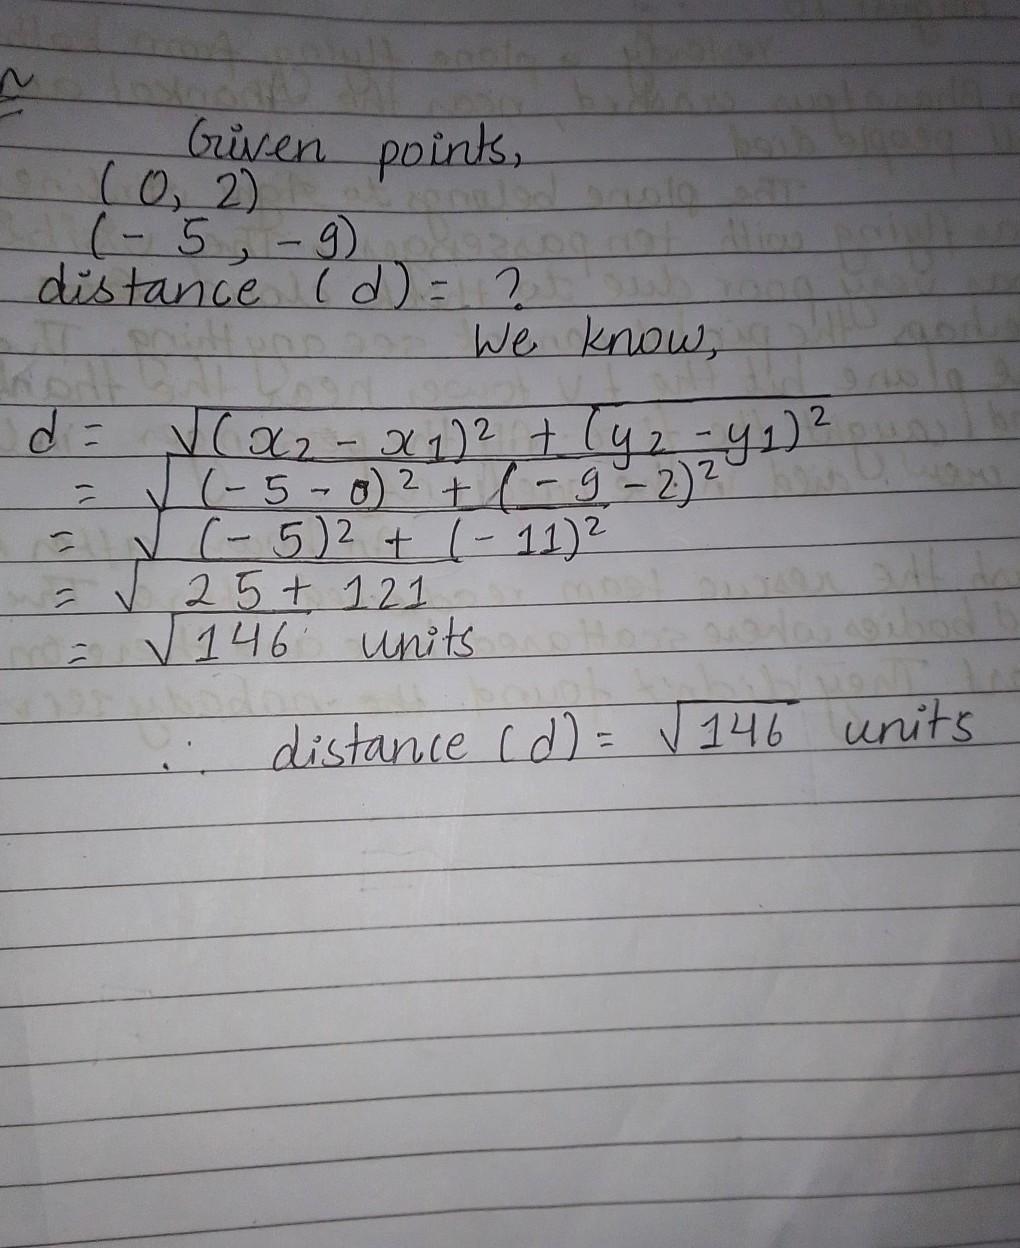 Given points,
(0, 2)
(- 5, - 9)
distance (d) = ?
We know,
d = √(x2 - x1)² + (y2 - y1)²
= √(- 5 - 0)² + (- 9 - 2)²
= √(- 5)² + (- 11)²
= √25 + 121
= √146 units
∴ distance (d) = √146 units